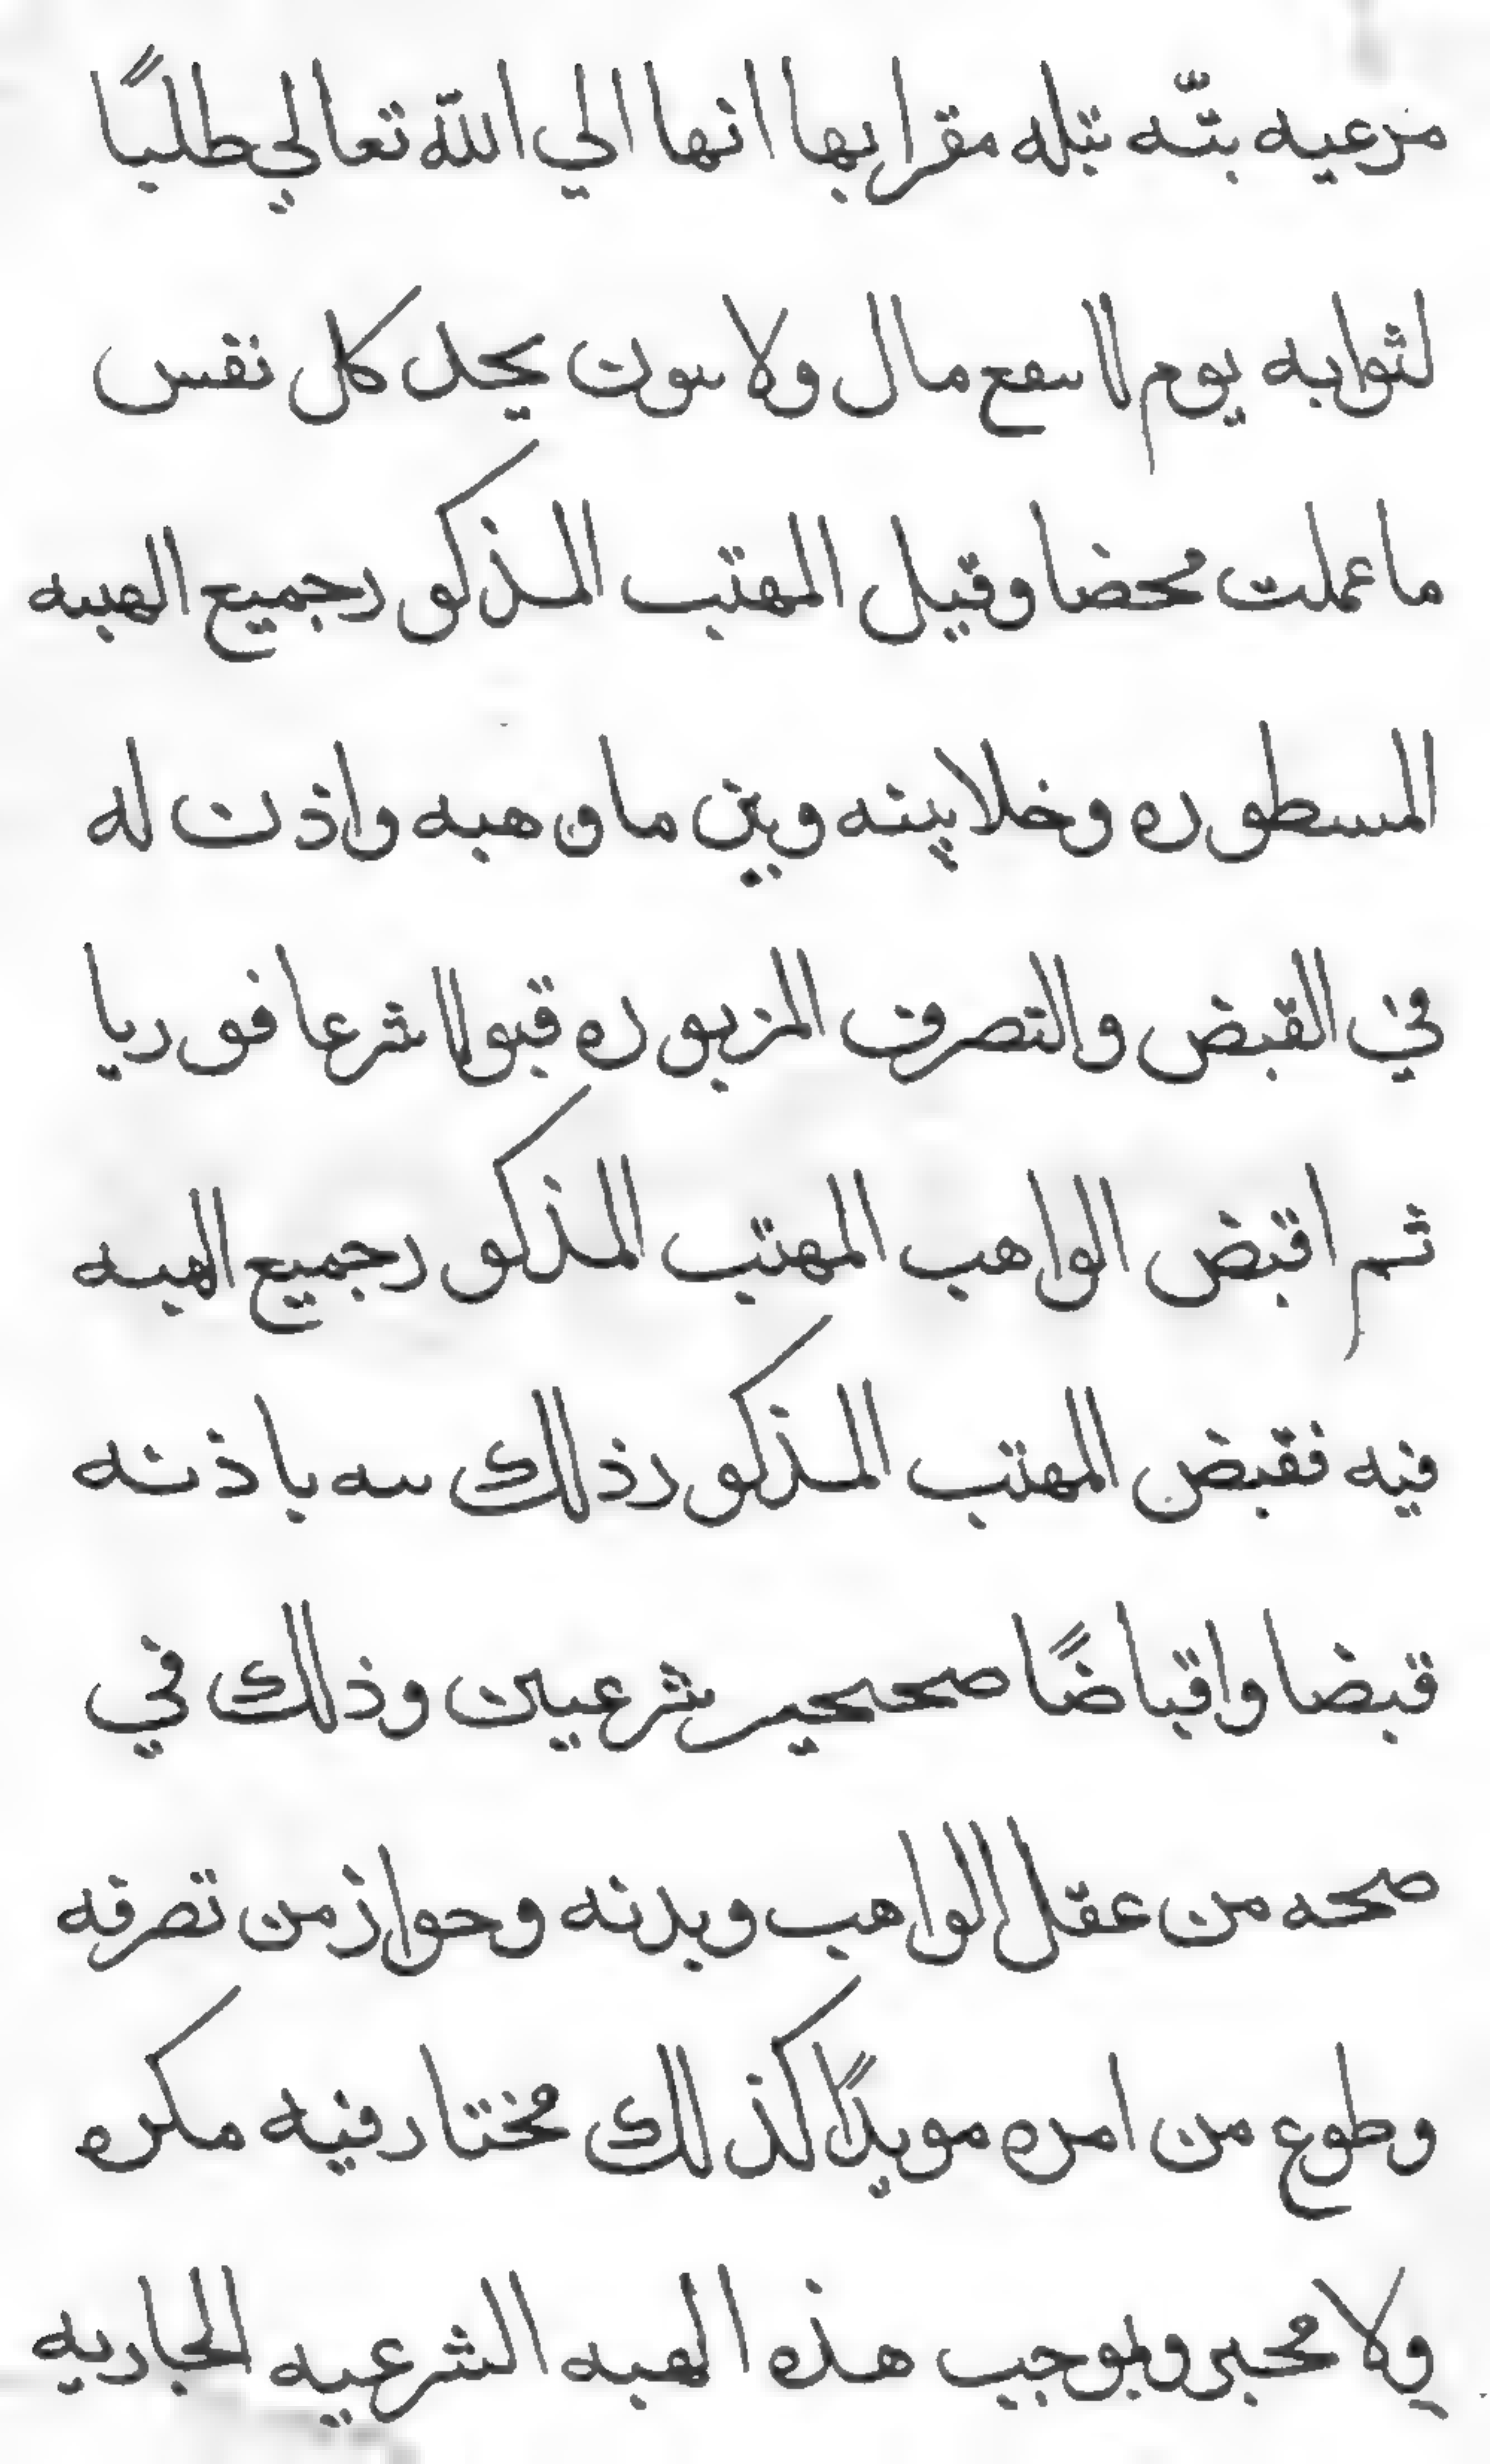 مرعيه بتّه بتله مقرا بها انها الي اللّه تعالي طلبًا
لثوابه يوم لا ىىفع مال ولا ىىون يجد كل نفس
ما عملت محضا وقبل المهتب المذكور جميع الهبه
المسطوره وخلا بينه وبين ما وهبه واذن له
في القبض والتصرف المزبوره قبولا شرعا فوريا
ثم اقبض الواهب المهتب المذكور جميع الهبه
فيه فقبض المهتب المذكور ذلك ىىه باذنه
قبضا واقباضًا صحىحىں شرعيين وذلك في
صحه من عقل الواهب وبدنه وحواز من تصرفه
وطوع من امره مويدًا كذلك مختار فيه مكره
ولا محبر وبموجب هذه الهبه الشرعيه الجاريه